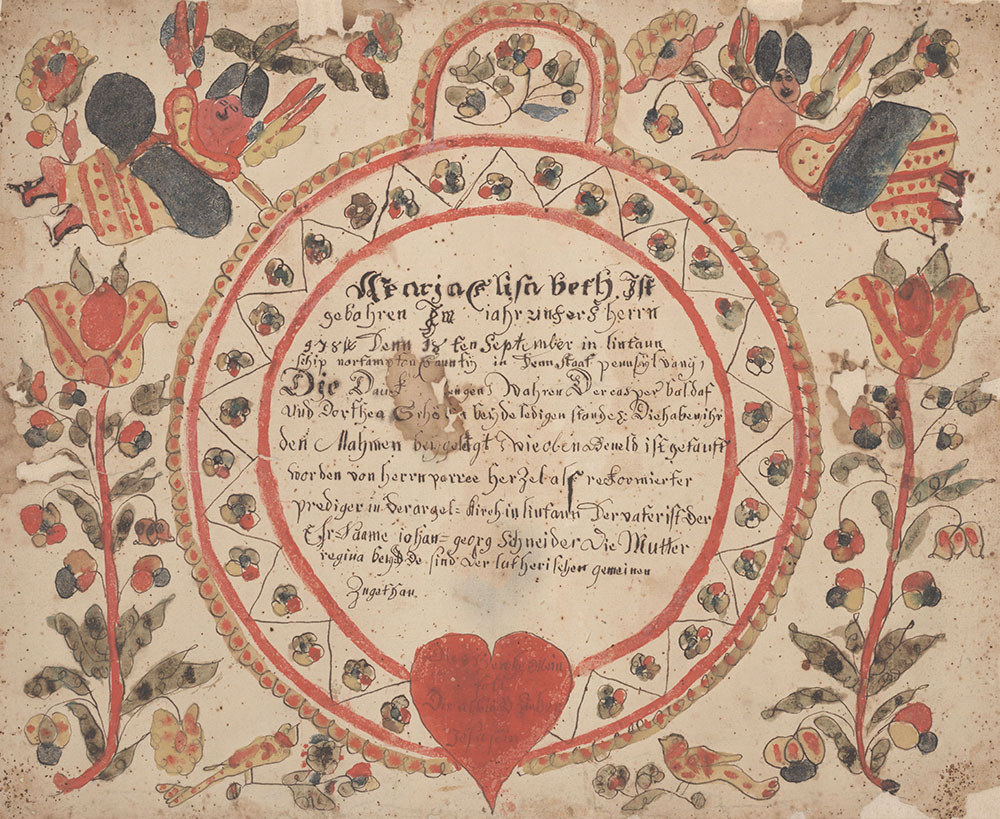 Maria Elisabeth. Ist
gebohren Im jahr unsers herrn
Denn 18 ten September in lintaun
schip nortampton Caunty in Denn staat pennsylvanj,
Die Wahren Der casper baldaf
Und Dorthea beyde ledigen standes Die haben ihr
den Nahmen beygelegt, wie oben Demeld ist getauft
worden von herrn parree herzel als reformierter
prediger in der argel= Kirch in lintaun Der vater ist der
Ehrsaame iohan= georg Schneider Die Mutter
regina beyde sind der lutherischen gemeinen
Zugethan